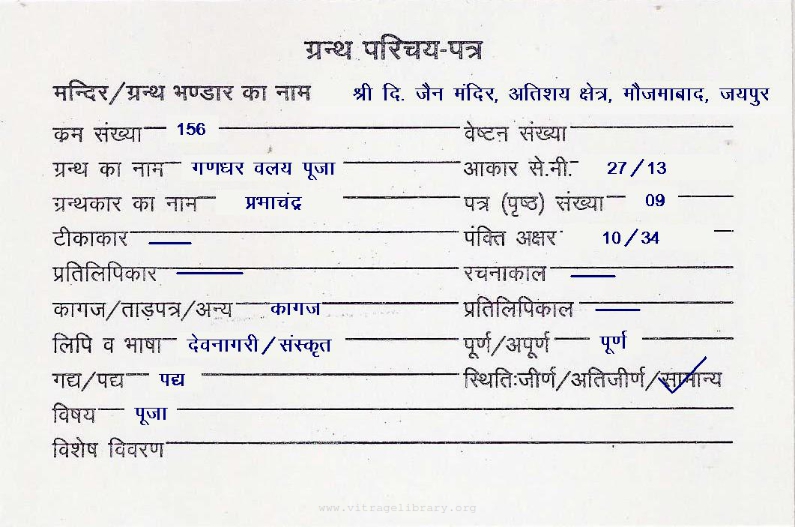 ग्रन्थ परिचय-पत्र
मन्दिर/ग्रन्थ भण्डार का नाम श्री दि. जैन मंदिर, अतिशय क्षेत्र, मौजमाबाद, जयपुर
कम संख्या 156 वेष्टन संख्या
ग्रन्थ का नाम गणधर वलय पूजा आकार से.नी. 27/13
ग्रन्थकार का नाम प्रभाचंद्र पत्र (पृष्ठ) संख्या 09
टीकाकार — पंक्ति अक्षर 10/34
प्रतिलिपिकार — रचनाकाल —
कागज/ताड़पत्र/अन्य कागज प्रतिलिपिकाल —
लिपि व भाषा देवनागरी/संस्कृत पूर्ण/अपूर्ण पूर्ण
गद्य/पद्य पद्य स्थितिःजीर्ण/अतिजीर्ण/सामान्य
विषय पूजा
विशेष विवरण
www.vitragelibrary.org